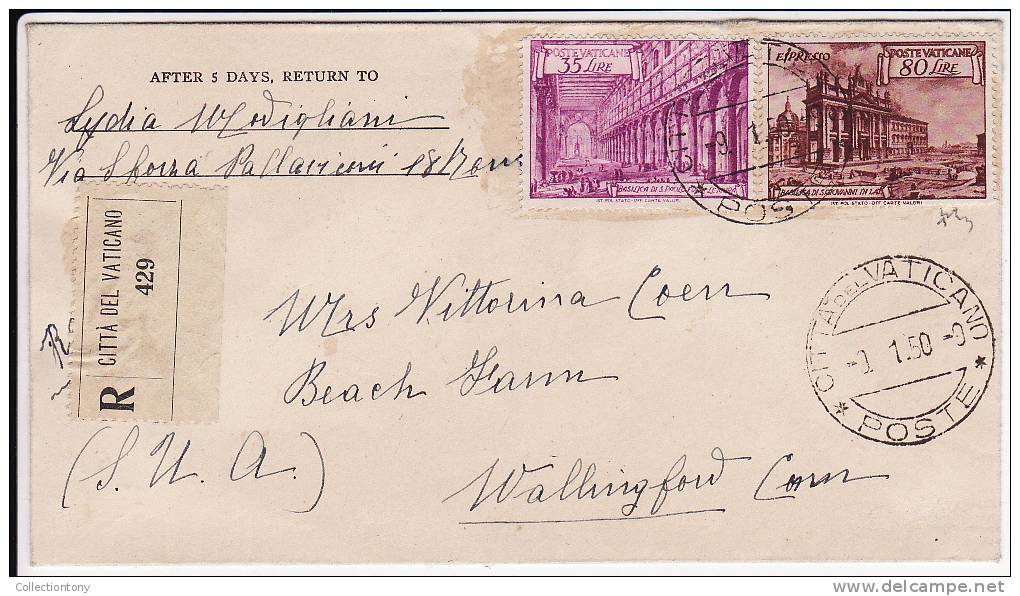 AFTER 5 DAYS, RETURN TO
Lydia Modigliani
Via Sforza Pallavicini 18 Roma
POSTE VATICANE
35 LIRE
BASILICA DI S. PAOLO
IST. POL. STATO - OFF. CARTE VALORI
ESPRESSO
POSTE VATICANE
80 LIRE
BASILICA DI S. GIOVANNI IN LAT.
IST. POL. STATO - OFF. CARTE VALORI
-9. 1.50
* POSTE
R
CITTÀ DEL VATICANO
429
R
Mrs Vittorina Coen
Beach Farm
(S. U. A.)
Wallingford Conn
CITTA DEL VATICANO
-9 1.50 -9
* POSTE *
Collectiontony
delcampe.net